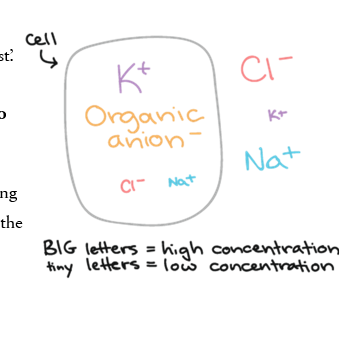 cell
st.'
K+
Cl−
Organic
anion−
K+
o
Na+
Cl− Na+
ng
the
BIG letters = high concentration
tiny letters = low concentration